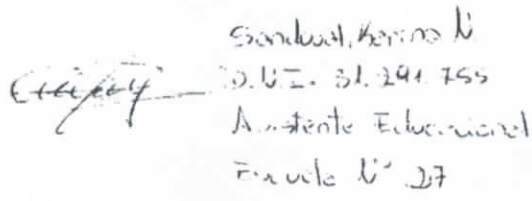 Sandoval, Karina N
D.N.I. 31.291.755
Asistente Educacional
Escuela N° 27